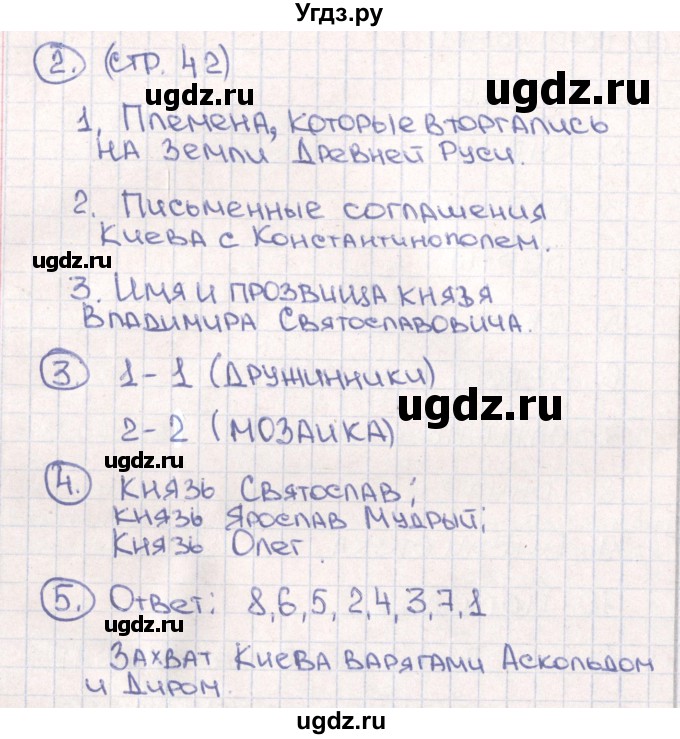 Угдз.ру
2. (стр. 42)
ugdz.ru
ugdz.ru
1. Племена, которые вторгались
на земли Древней Руси.
2. Письменные соглашения
Киева с Константинополем.
ugdz.ru
3. Имя и прозвища князя
Владимира Святославовича.
ugdz.ru
3 1-1 (дружинники)
ugdz.ru
2-2 (мозаика)
ugdz.ru
4. Князь Святослав;
князь Ярослав Мудрый;
Князь Олег.
5. Ответ: 8,6,5, 2,4,3,7,1
ugdz.ru
Захват Киева варягами Аскольдом
и Диром.
ugdz.ru